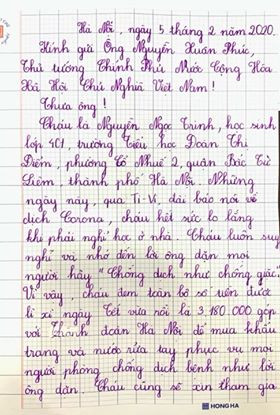 Hà Nội, ngày 5 tháng 2 năm 2020.
Kính gửi Ông Nguyễn Xuân Phúc,
Thủ tướng Chính Phủ Nước Cộng Hòa
Xã Hội Chủ Nghĩa Việt Nam!
Thưa ông!
Cháu là Nguyễn Ngọc Trinh, học sinh
lớp 4C1, trường Tiểu học Đoàn Thị
Điểm, phường Cổ Nhuế 2, quận Bắc Từ
Liêm, thành phố Hà Nội. Những
ngày này, qua Ti-Vi, đài báo nói về
dịch Corona, cháu hết sức lo lắng
khi phải nghỉ học ở nhà. Cháu luôn suy
nghĩ và nhớ đến lời ông dặn mọi
người hãy "Chống dịch như chống giặc".
Vì vậy, cháu đem toàn bộ số tiền được
lì xì ngày Tết vừa rồi là 3.180.000 góp
với Thành đoàn Hà Nội để mua khẩu
trang và nước rửa tay phục vụ mọi
người phòng chống dịch bệnh như lời
ông dặn. Cháu cũng sẽ xin tham gia
HONG HA